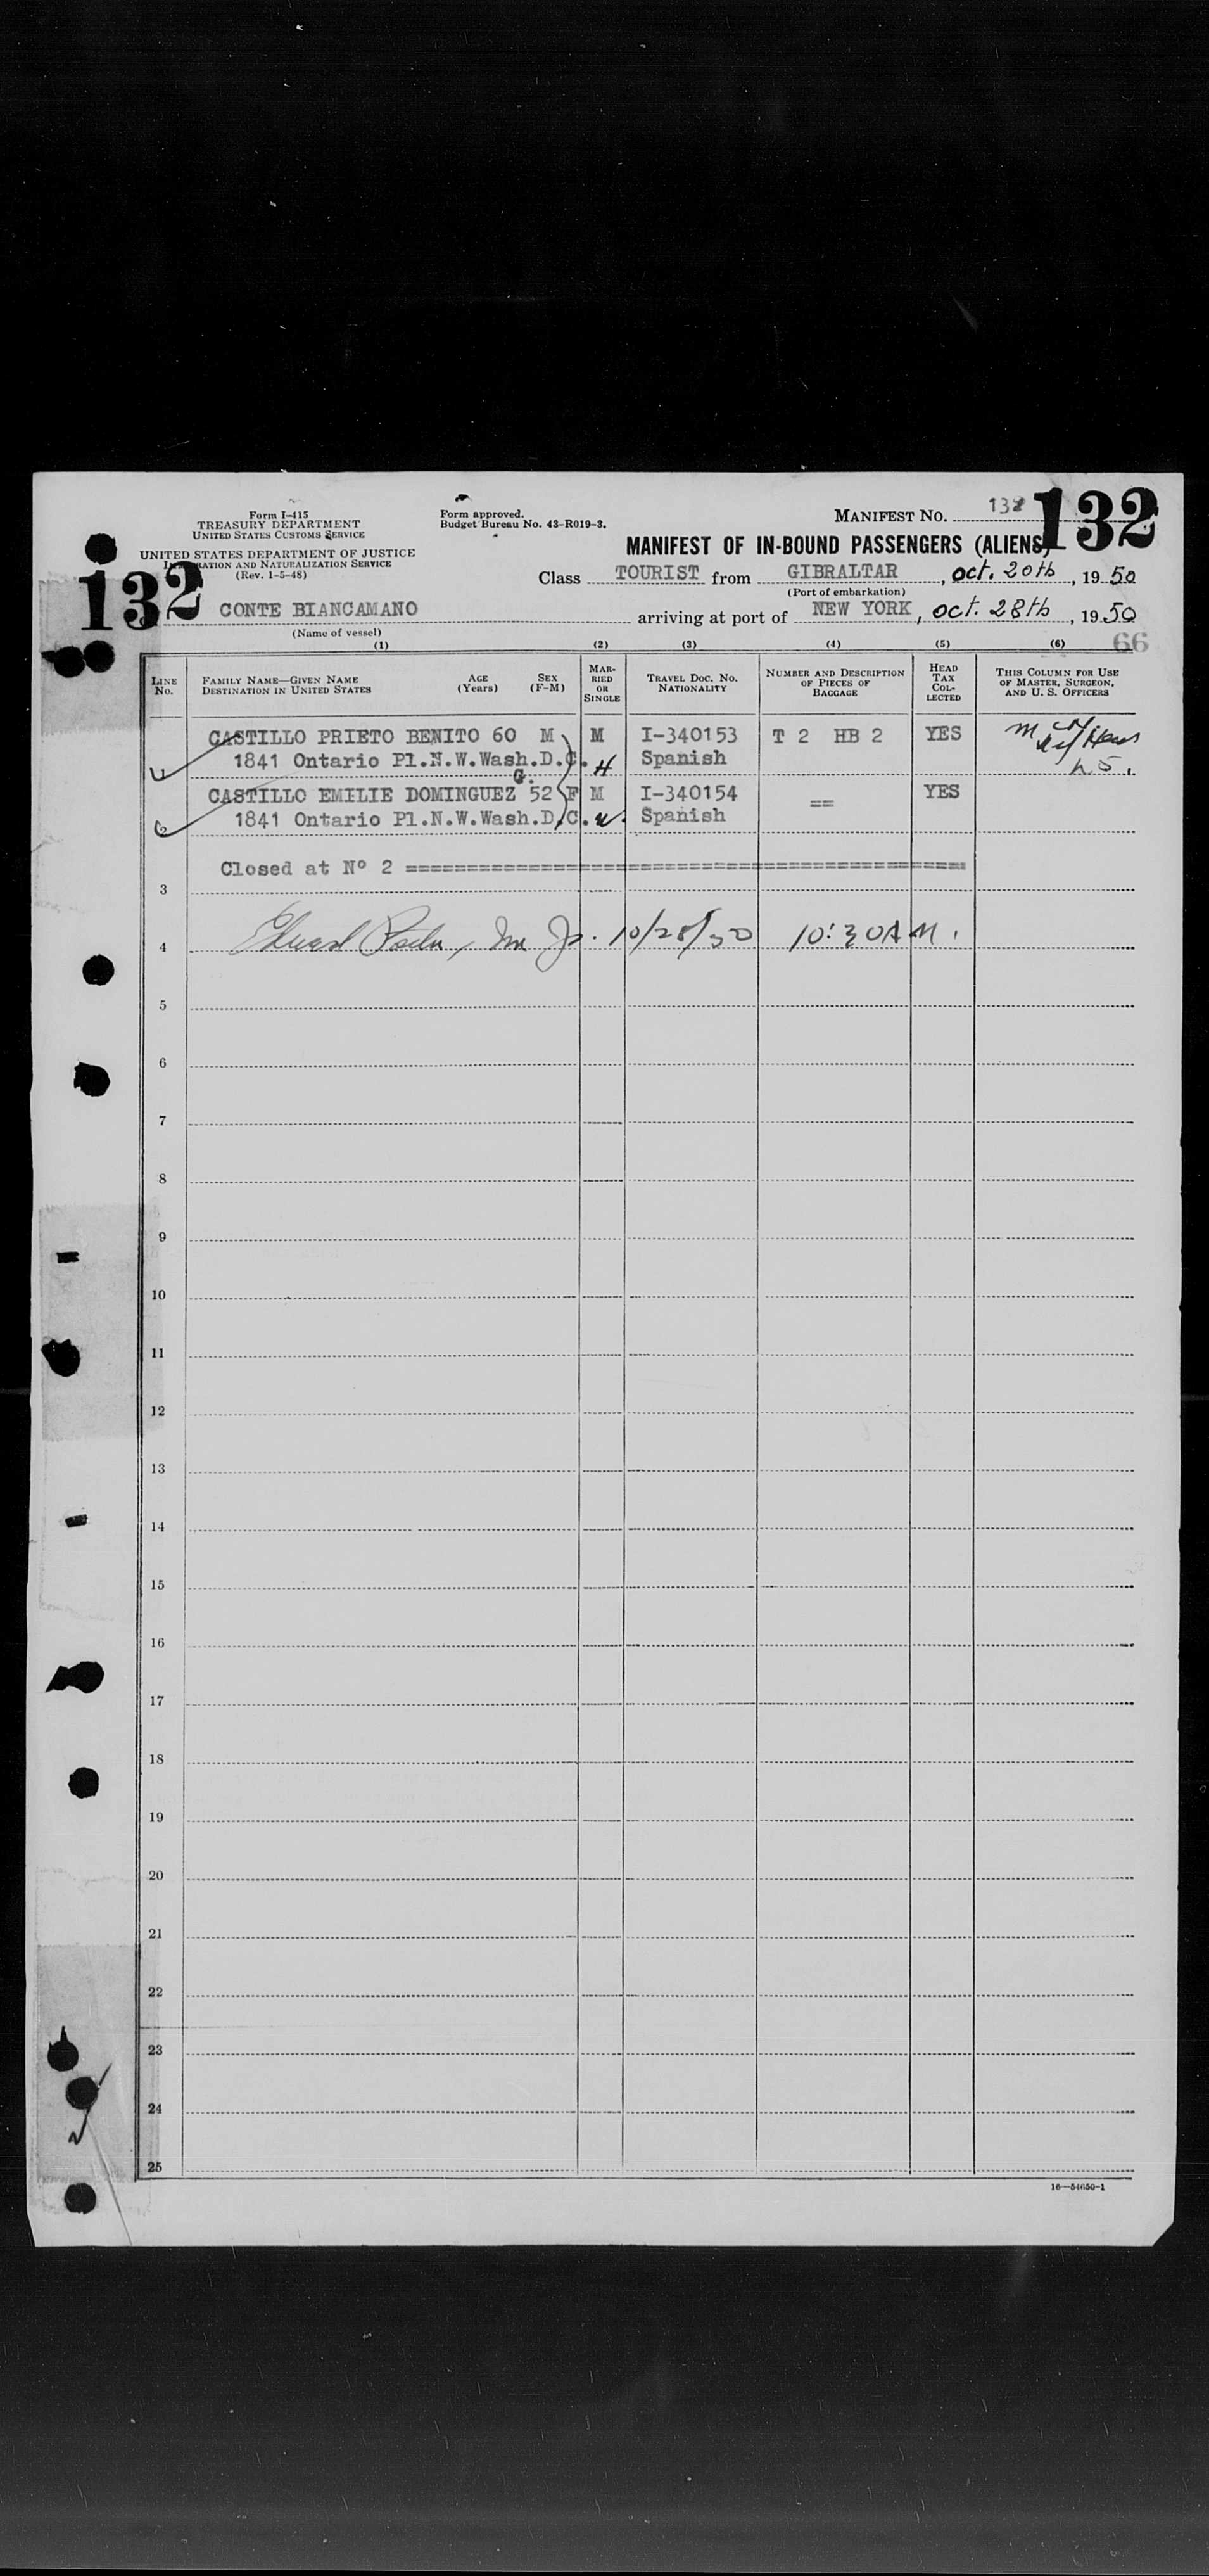 Form I-415
TREASURY DEPARTMENT
UNITED STATES CUSTOMS SERVICE
UNITED STATES DEPARTMENT OF JUSTICE
IMMIGRATION AND NATURALIZATION SERVICE
(Rev. 1-5-48)
Form approved.
Budget Bureau No. 43-R019-3.
MANIFEST NO. 132
132
132
MANIFEST OF IN-BOUND PASSENGERS (ALIENS)
Class TOURIST from GIBRALTAR, oct. 20th, 1950
(Port of embarkation)
CONTE BIANCAMANO arriving at port of NEW YORK, oct. 28th, 1950
(Name of vessel)
66
(1) (2) (3) (4) (5) (6)
LINE No. FAMILY NAME—GIVEN NAME DESTINATION IN UNITED STATES AGE (Years) SEX (F-M) MARRIED OR SINGLE TRAVEL DOC. NO. NATIONALITY NUMBER AND DESCRIPTION OF PIECES OF BAGGAGE HEAD TAX COLLECTED THIS COLUMN FOR USE OF MASTER, SURGEON, AND U. S. OFFICERS
CASTILLO PRIETO BENITO 60 M M I-340153 T 2 HB 2 YES
1 1841 Ontario Pl.N.W.Wash.D.C. H Spanish
G.
CASTILLO EMILIE DOMINGUEZ 52 F M I-340154 == YES
2 1841 Ontario Pl.N.W.Wash.D.C. w. Spanish
Closed at Nº 2 ==============================================
3
4 10/28/50 10:30 AM.
5
6
7
8
9
10
11
12
13
14
15
16
17
18
19
20
21
22
23
24
25
16—54650-1